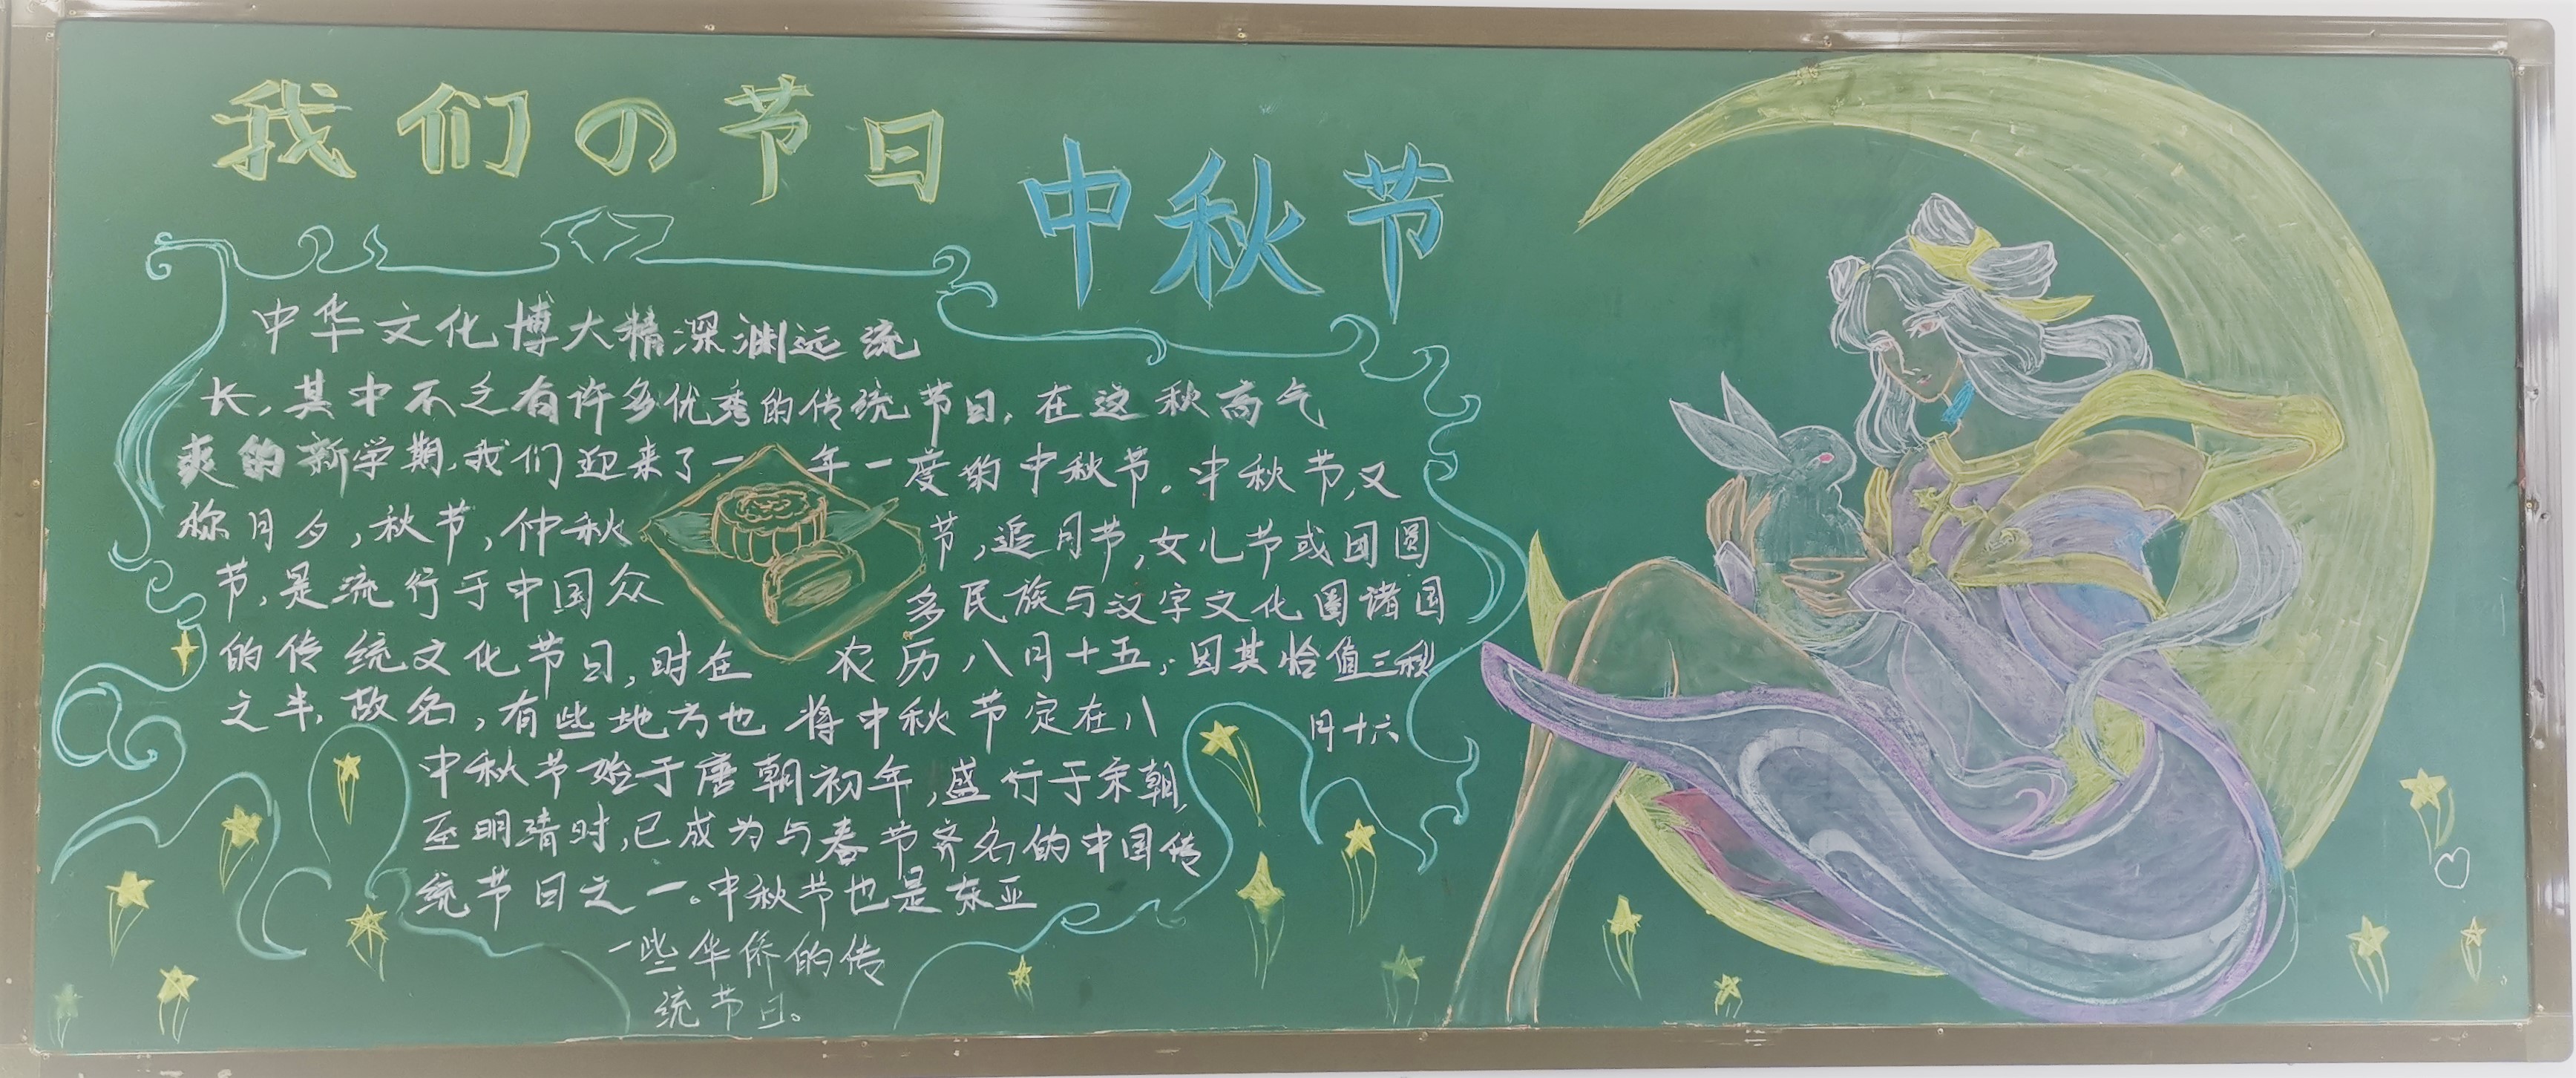 我们の节日
中秋节
中华文化博大精深渊远流
长,其中不乏有许多优秀的传统节日,在这秋高气
爽的新学期,我们迎来了一年一度的中秋节。中秋节,又
称月夕,秋节,仲秋节,追月节,女儿节或团圆
节,是流行于中国众多民族与汉字文化圈诸国
的传统文化节日,时在农历八月十五;因其恰值三秋
之半,故名,有些地方也将中秋节定在八月十六
中秋节始于唐朝初年,盛行于宋朝,
至明清时,已成为与春节齐名的中国传
统节日之一。中秋节也是东亚
一些华侨的传
统节日。